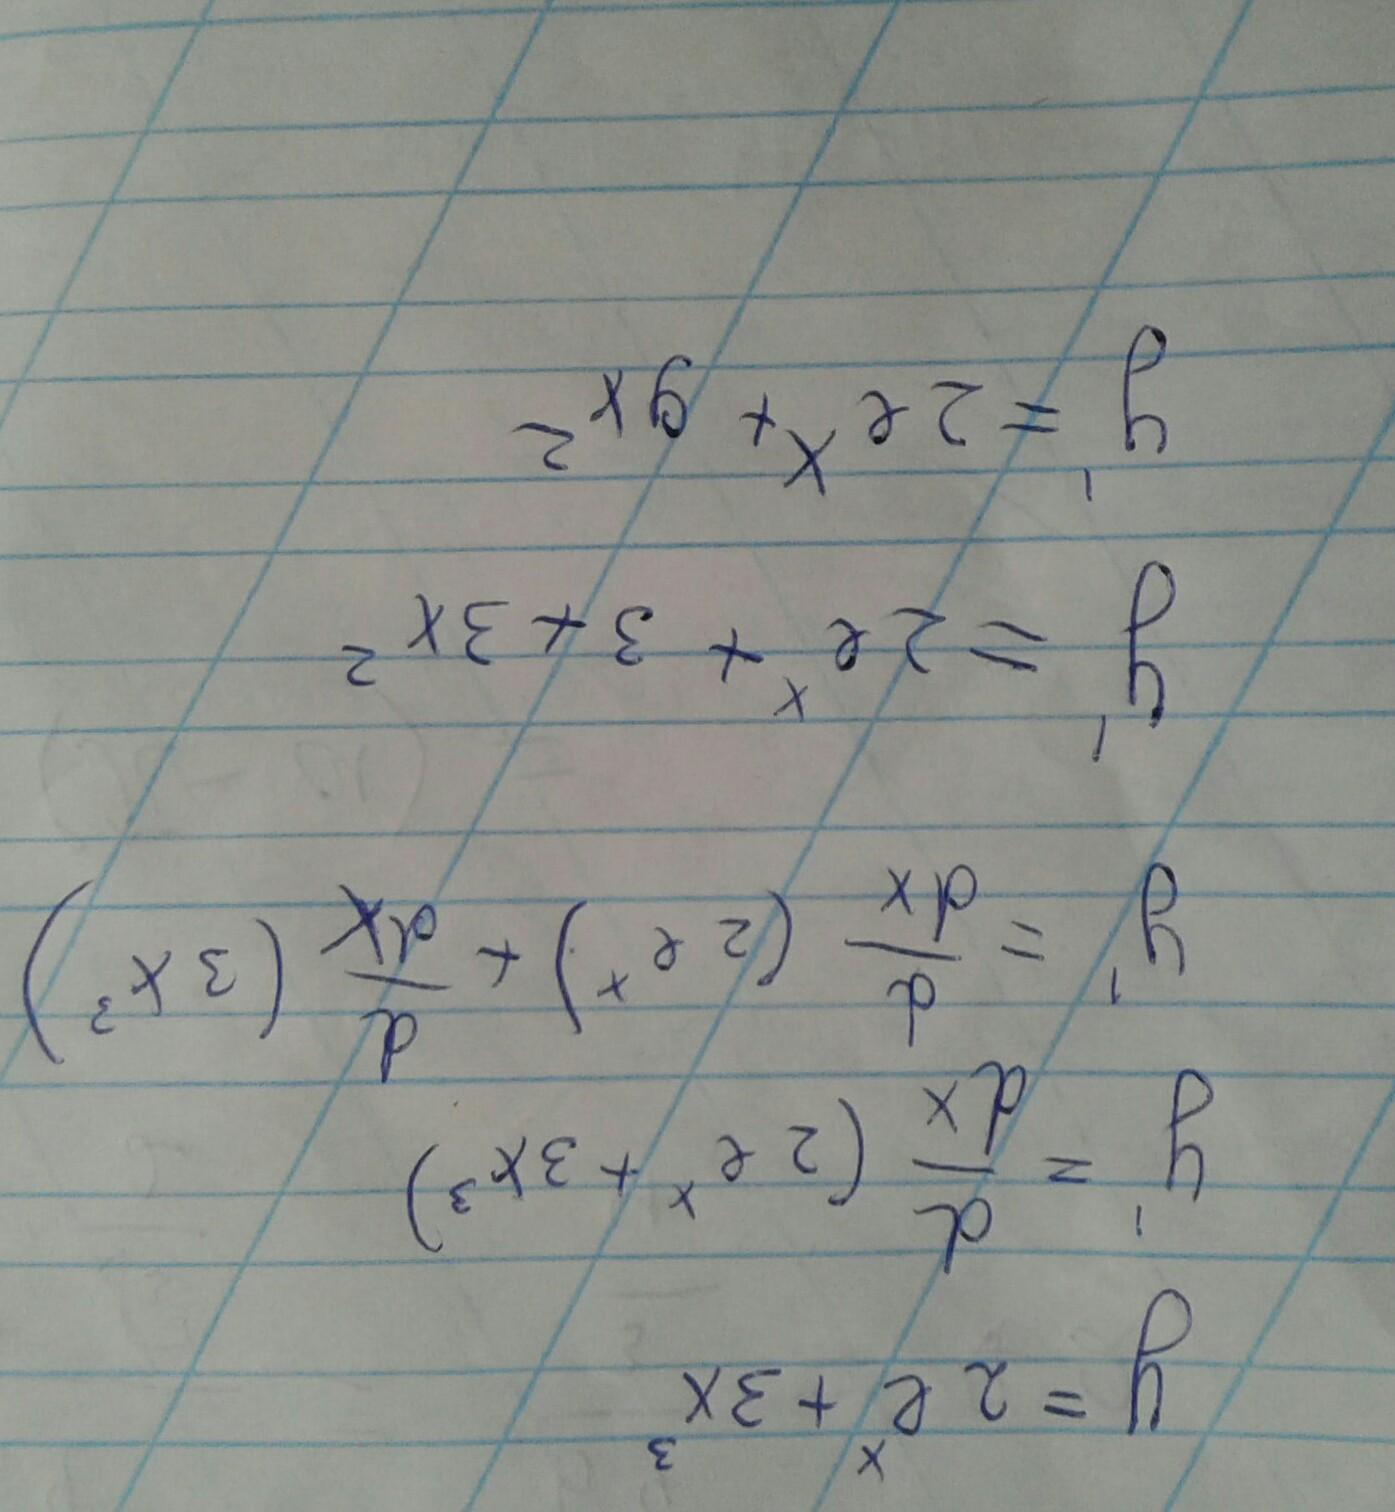 y = 2e^x + 3x^3
y' = d/dx (2e^x + 3x^3)
y' = d/dx (2e^x) + d/dx (3x^3)
y' = 2e^x + 3 × 3x^2
y' = 2e^x + 9x^2